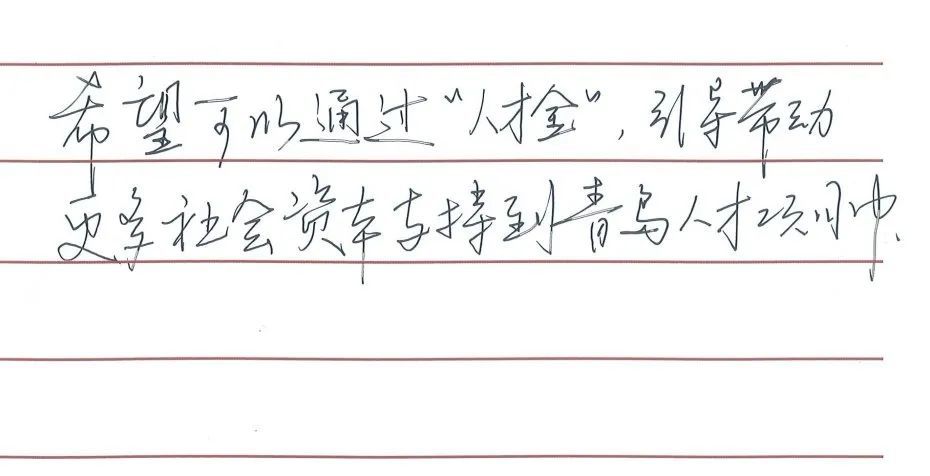 希望可以通过“人才金”，引导带动
更多社会资本支持到青岛人才项目中.